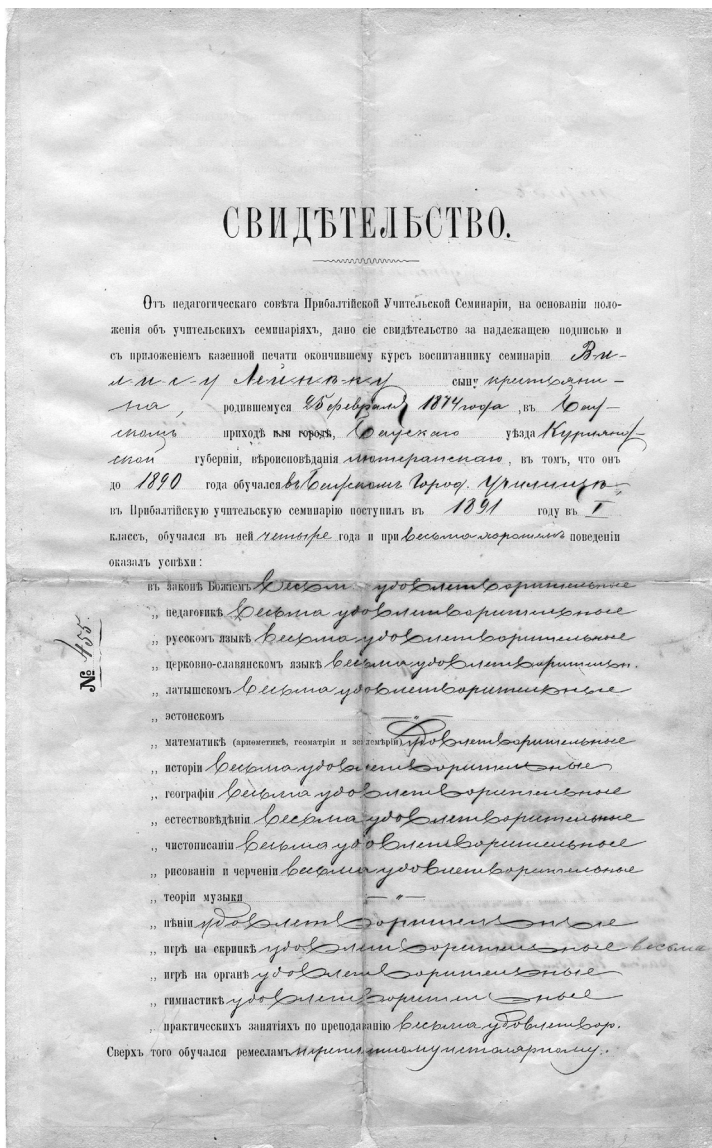 СВИДѢТЕЛЬСТВО.
Отъ педагогическаго совѣта Прибалтійской Учительской Семинаріи, на основаніи поло-
женія объ учительскихъ семинаріяхъ, дано сіе свидѣтельство за надлежащею подписью и
съ приложеніемъ казенной печати окончившему курсъ воспитаннику семинаріи Ви-
лису сыну крестьяни-
на, родившемуся 25 февраля 1874 года, въ Бау-
скомъ приходѣ или городѣ, Баускаго уѣзда Курлянд-
ской губерніи, вѣроисповѣданія лютеранскаго, въ томъ, что онъ
до 1890 года обучался въ Баускомъ Город. училищѣ,
въ Прибалтійскую учительскую семинарію поступилъ въ 1891 году въ I
классъ, обучался въ ней четыре года и при весьма хорошемъ поведеніи
оказалъ успѣхи:
въ законѣ Божіемъ весьма удовлетворительные
„ педагогикѣ весьма удовлетворительные
„ русскомъ языкѣ весьма удовлетворительные
„ церковно-славянскомъ языкѣ весьма удовлетворительн.
„ латышскомъ весьма удовлетворительные
„ эстонскомъ — „ —
„ математикѣ (ариѳметикѣ, геометріи и землемѣріи) удовлетворительные
„ исторіи весьма удовлетворительные
„ географіи весьма удовлетворительные
„ естествовѣдѣніи весьма удовлетворительные
„ чистописаніи весьма удовлетворительные
„ рисованіи и черченіи весьма удовлетворительные
„ теоріи музыки — „ —
„ пѣніи удовлетворительные
„ игрѣ на скрипкѣ удовлетворительные весьма
„ игрѣ на органѣ удовлетворительные
„ гимнастикѣ удовлетворительные
„ практическихъ занятіяхъ по преподаванію весьма удовлетвор.
Сверхъ того обучался ремесламъ переплетному и столярному.
№ 455.